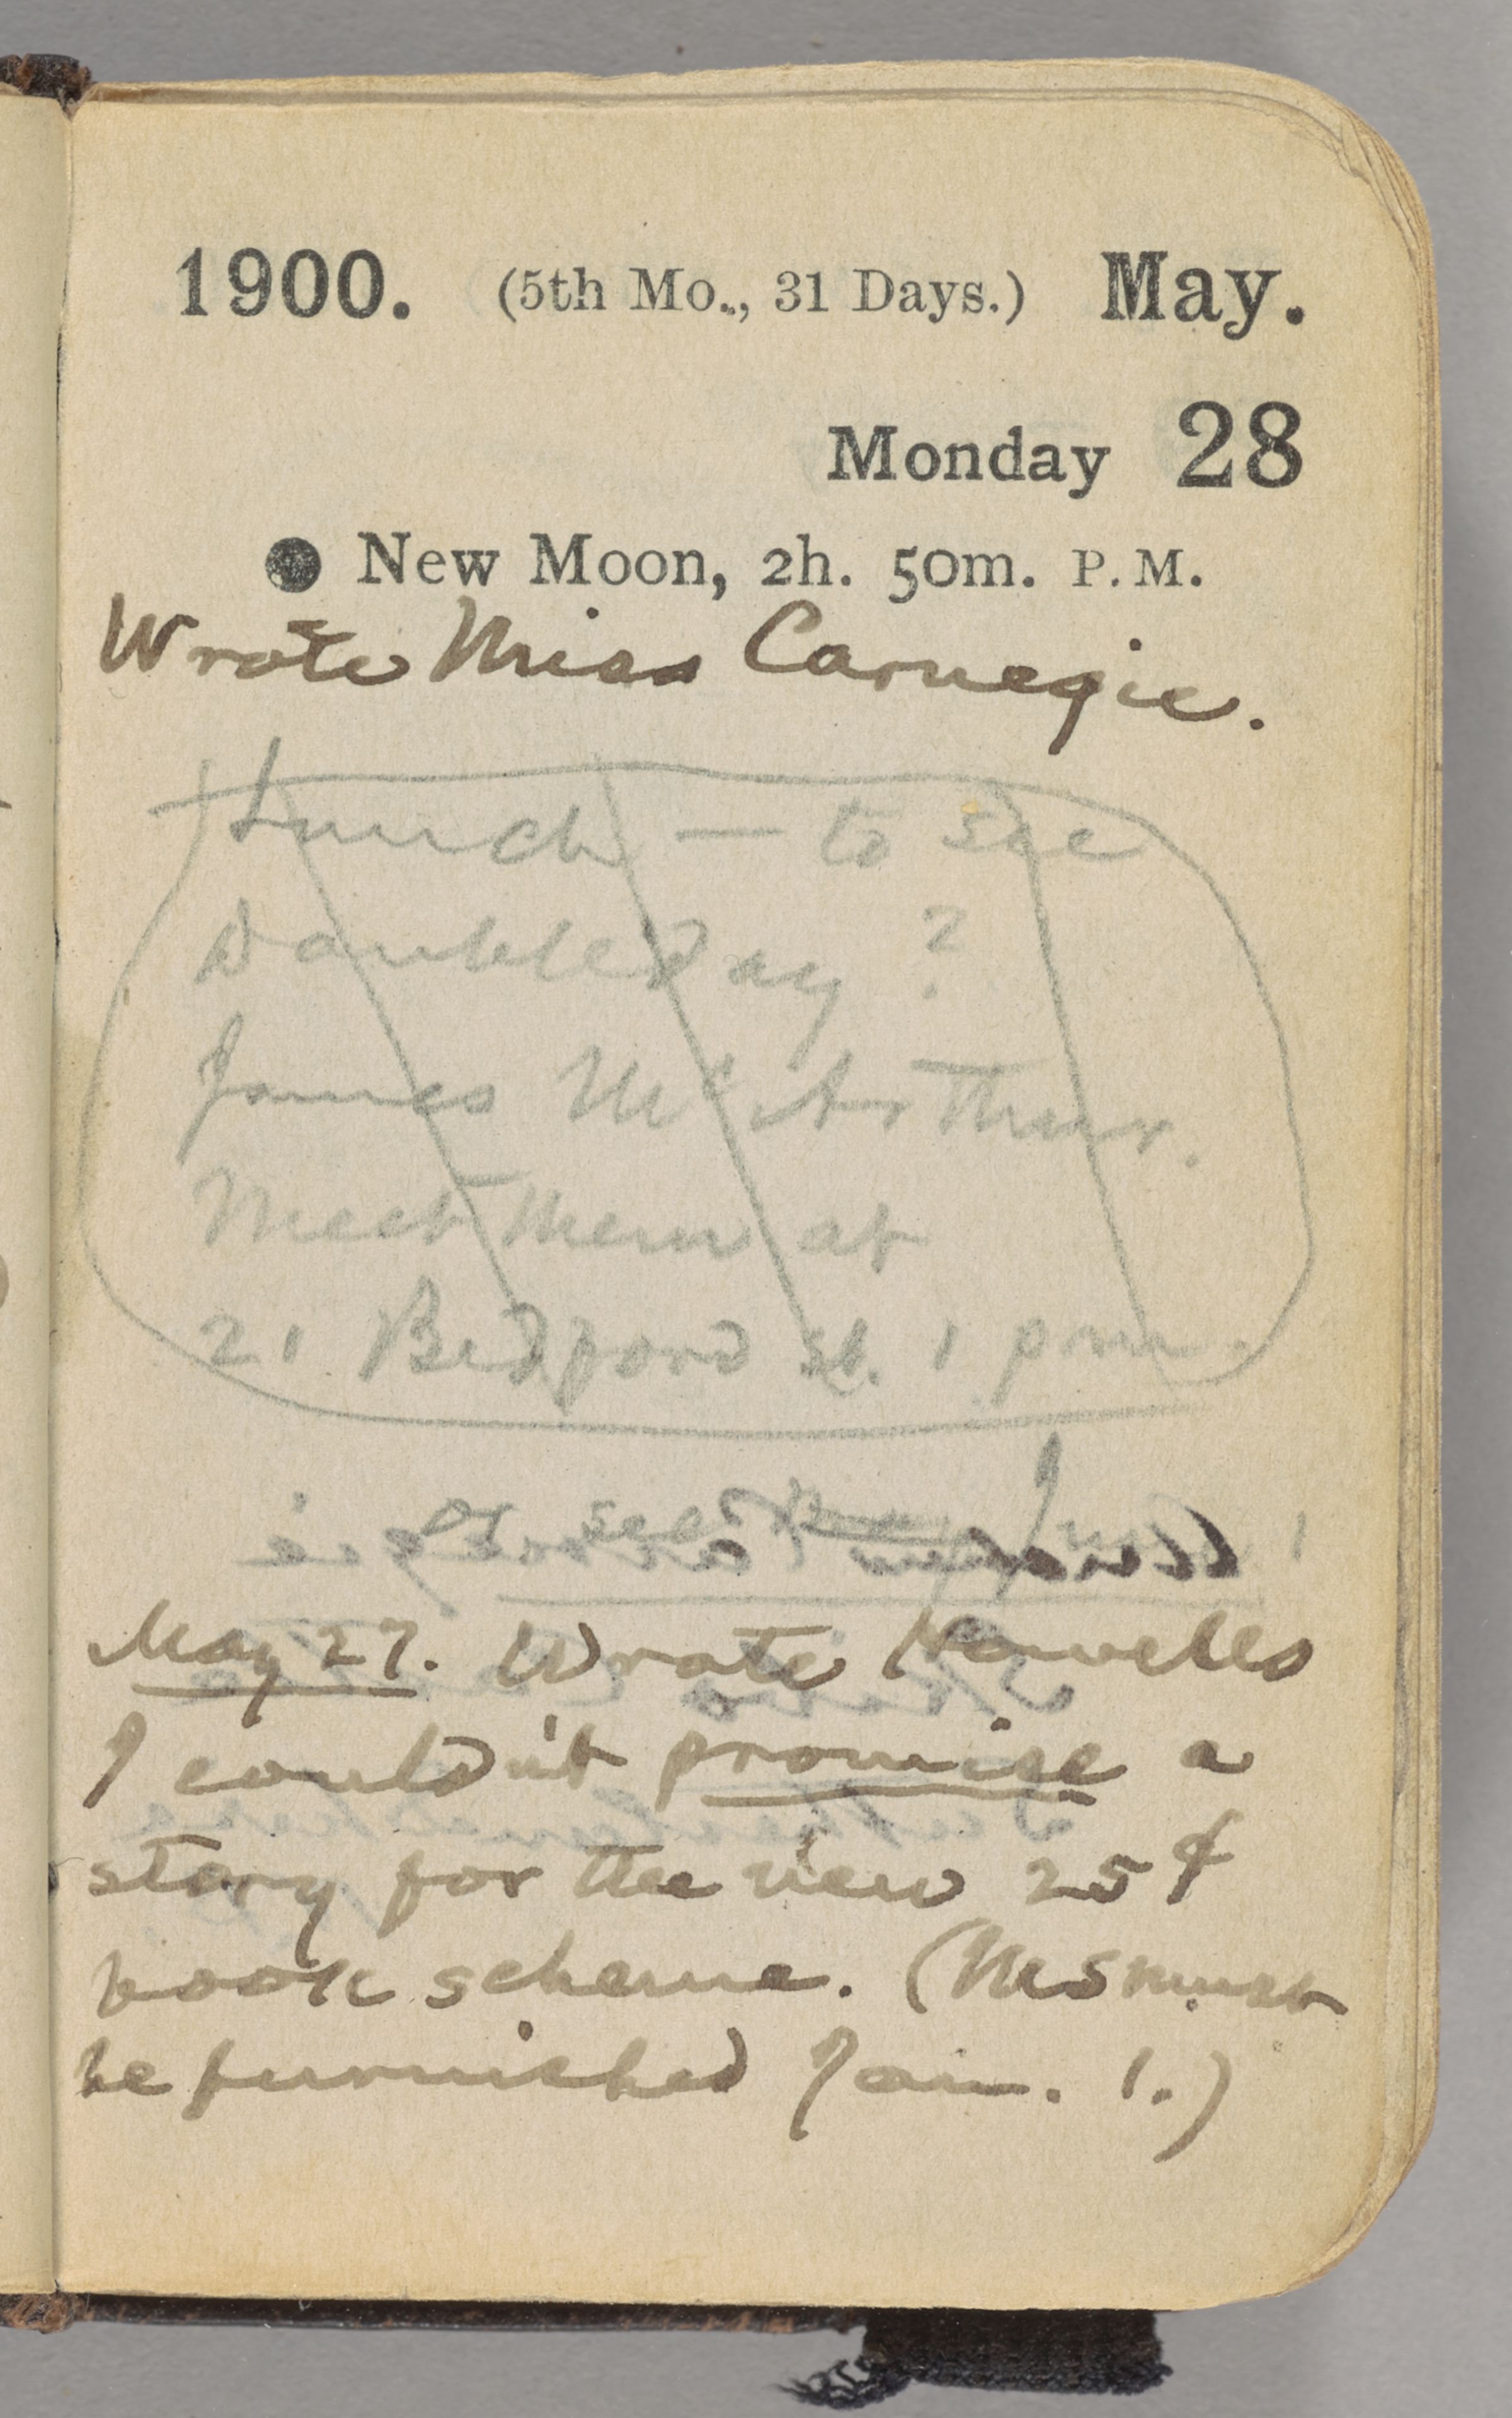 1900. (5th Mo., 31 Days.) May.
Monday 28
New Moon, 2h. 50m. P.M.
Wrote Miss Carnegie.
Lunch — to see
Doubleday?
James McArthur.
Meet them at
21 Bedford st. 1 pm.
May 27. Wrote Howells
I couldn't promise a
story for the new 25¢
book scheme. (MS must
be furnished Jan. 1.)